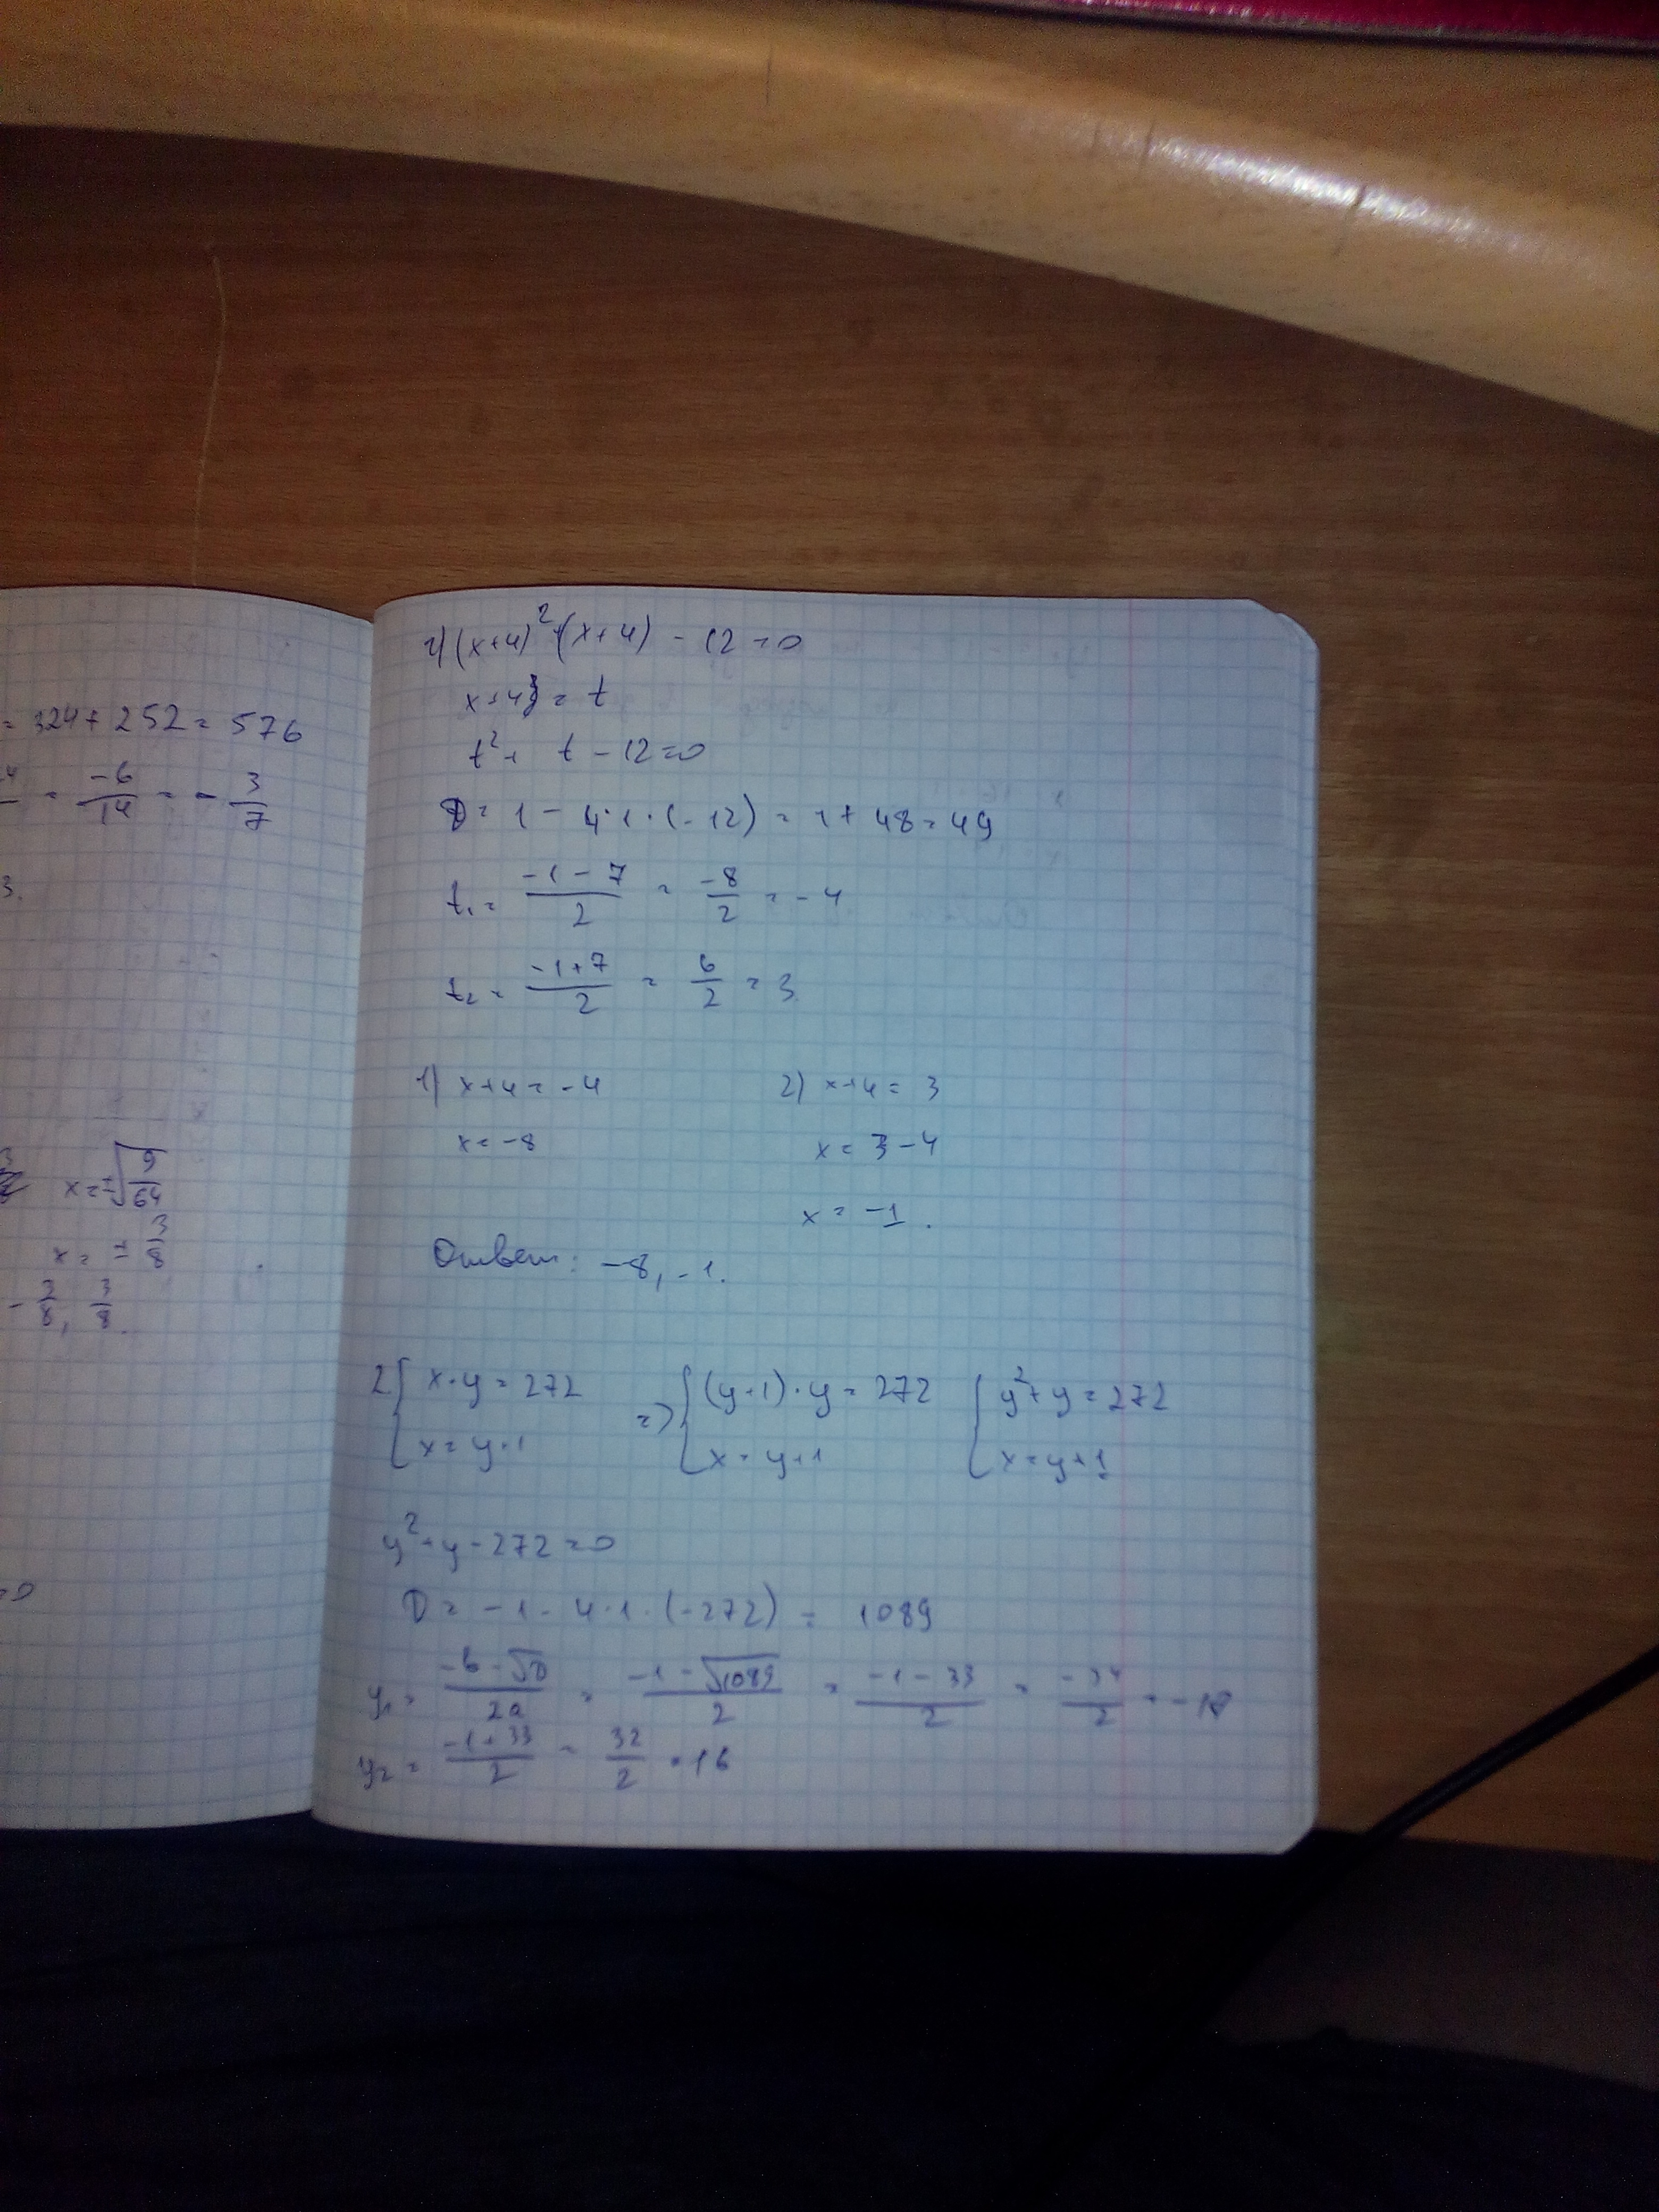 = 324 + 252 = 576
= -6/14 = - 3/7
3.
x = ±√(9/64)
x = ± 3/8
- 3/8, 3/8.
=0
г) (x+4)² + (x+4) - 12 = 0
x+4 = t
t² + t - 12 = 0
D = 1 - 4·1·(-12) = 1 + 48 = 49
t₁ = (-1 - 7)/2 = -8/2 = -4
t₂ = (-1+7)/2 = 6/2 = 3
1) x+4 = -4 2) x+4 = 3
x = -8 x = 3 - 4
x = -1.
Ответ: -8, -1.
2. { x·y = 272 => { (y+1)·y = 272 { y² + y = 272
x = y+1 x = y+1 x = y+1
y² + y - 272 = 0
D = -1 - 4·1·(-272) = 1089
y₁ = (-b - √D)/2a = (-1 - √1089)/2 = (-1 - 33)/2 = -34/2 = -17
y₂ = (-1 + 33)/2 = 32/2 = 16